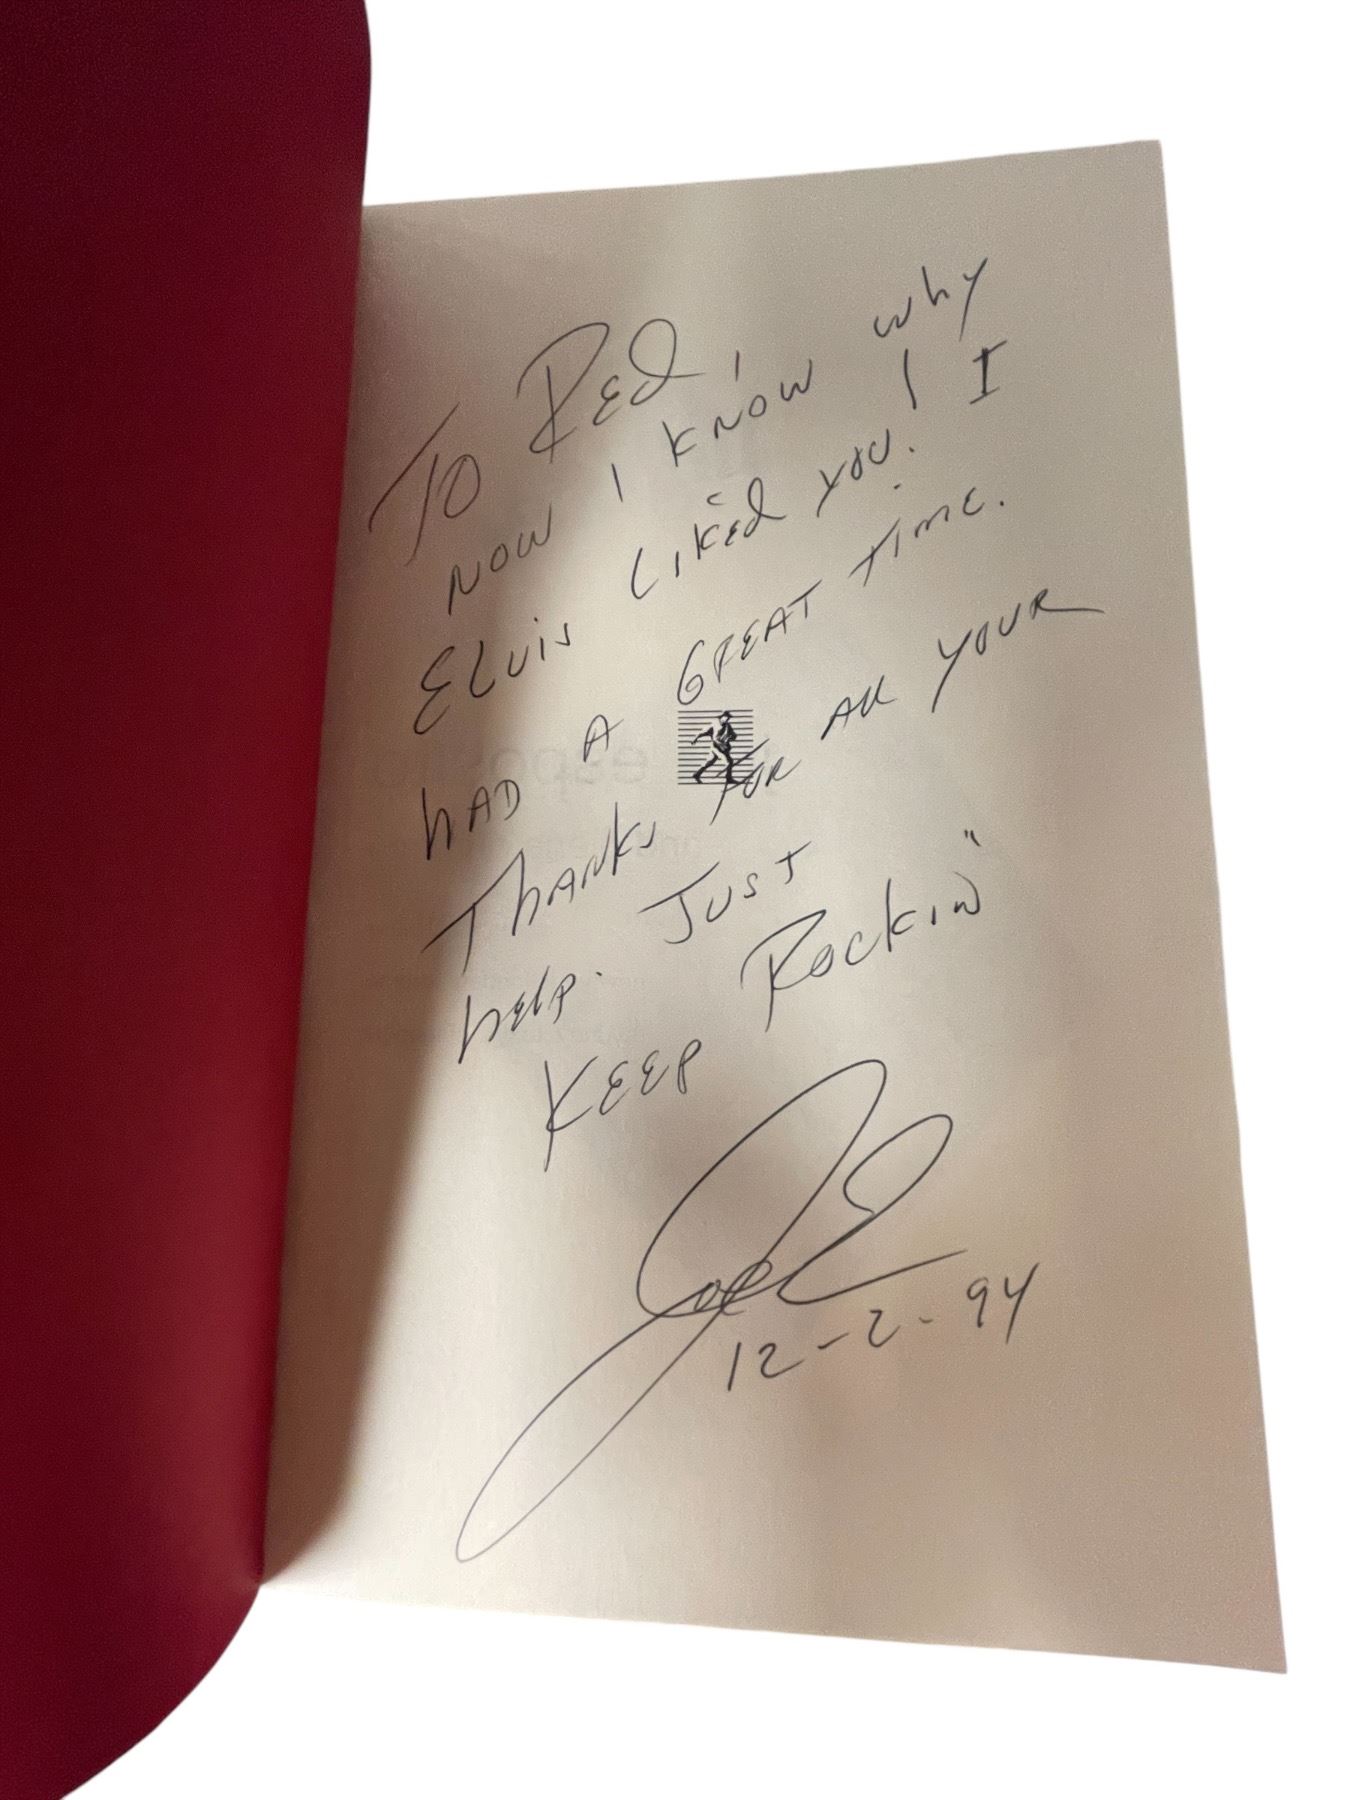 TO Red,
NOW I KNOW why
ELVIS LIKED YOU! I
hAD A GREAT TIME.
THANKS FOR All YOUR
help. JUST
KEEP ROCKIN"
Joe
12-2-94